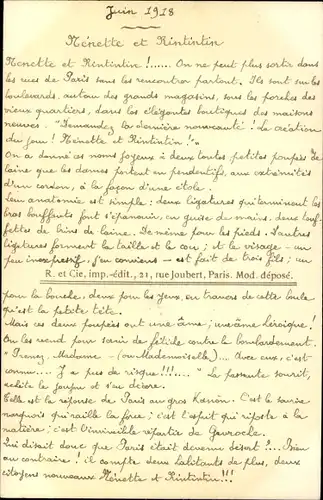 Juin 1918
Nénette et Rintintin
Nénette et Rintintin !...... On ne peut plus sortir dans
les rues de Paris sans les rencontrer partout. Ils sont sur les
boulevards, autour des grands magasins, sous les porches des
vieux quartiers, dans les élégantes boutiques des maisons
neuves. "Demandez la dernière nouveauté ! La création
du jour ! Nénette et Rintintin !"
On a donné ces noms joyeux à deux toutes petites poupées de
laine que les dames portent en pendentifs, aux extrémités
d'un cordon, à la façon d'une étole.
Leur anatomie est simple : deux ligatures qui terminent les
bras bouffants font s'épanouir, en guise de mains, deux touf-
fettes de brins de laine. De même pour les pieds. D'autres
ligatures forment la taille et le cou ; et le visage - un
peu inexpressif, j'en conviens - est fait de trois fils ; un
R. et Cie, imp.-édit., 21, rue Joubert, Paris. Mod. déposé.
pour la bouche, deux pour les yeux, en travers de cette boule
qu'est la petite tête.
Mais ces deux poupées ont une âme ; une âme héroïque !
On les vend pour servir de fétiche contre le bombardement.
"Prenez, Madame - (ou Mademoiselle)... Avec eux, c'est
connu.... y a pas de risque !!!...." La passante sourit,
achète le joujou et s'en décore.
Elle est la réponse de Paris au gros Kanon. C'est le sourire
narquois qui raille la force ; c'est l'esprit qui riposte à la
matière ; c'est l'invincible répartie de Gavroche.
Qui disait donc que Paris était devenu désert ?... Bien
au contraire ! il compte deux habitants de plus, deux
citoyens nouveaux Nénette et Rintintin !!!